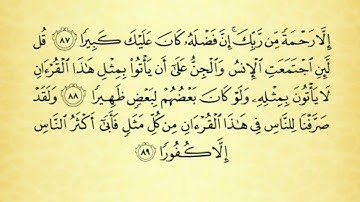 إِلَّا رَحْمَةً مِّن رَّبِّكَ ۚ إِنَّ فَضْلَهُۥ كَانَ عَلَيْكَ كَبِيرًا ٨٧ قُل
لَّئِنِ ٱجْتَمَعَتِ ٱلْإِنسُ وَٱلْجِنُّ عَلَىٰٓ أَن يَأْتُوا۟ بِمِثْلِ هَٰذَا ٱلْقُرْءَانِ
لَا يَأْتُونَ بِمِثْلِهِۦ وَلَوْ كَانَ بَعْضُهُمْ لِبَعْضٍ ظَهِيرًا ٨٨ وَلَقَدْ
صَرَّفْنَا لِلنَّاسِ فِى هَٰذَا ٱلْقُرْءَانِ مِن كُلِّ مَثَلٍ فَأَبَىٰٓ أَكْثَرُ ٱلنَّاسِ
إِلَّا كُفُورًا ٨٩